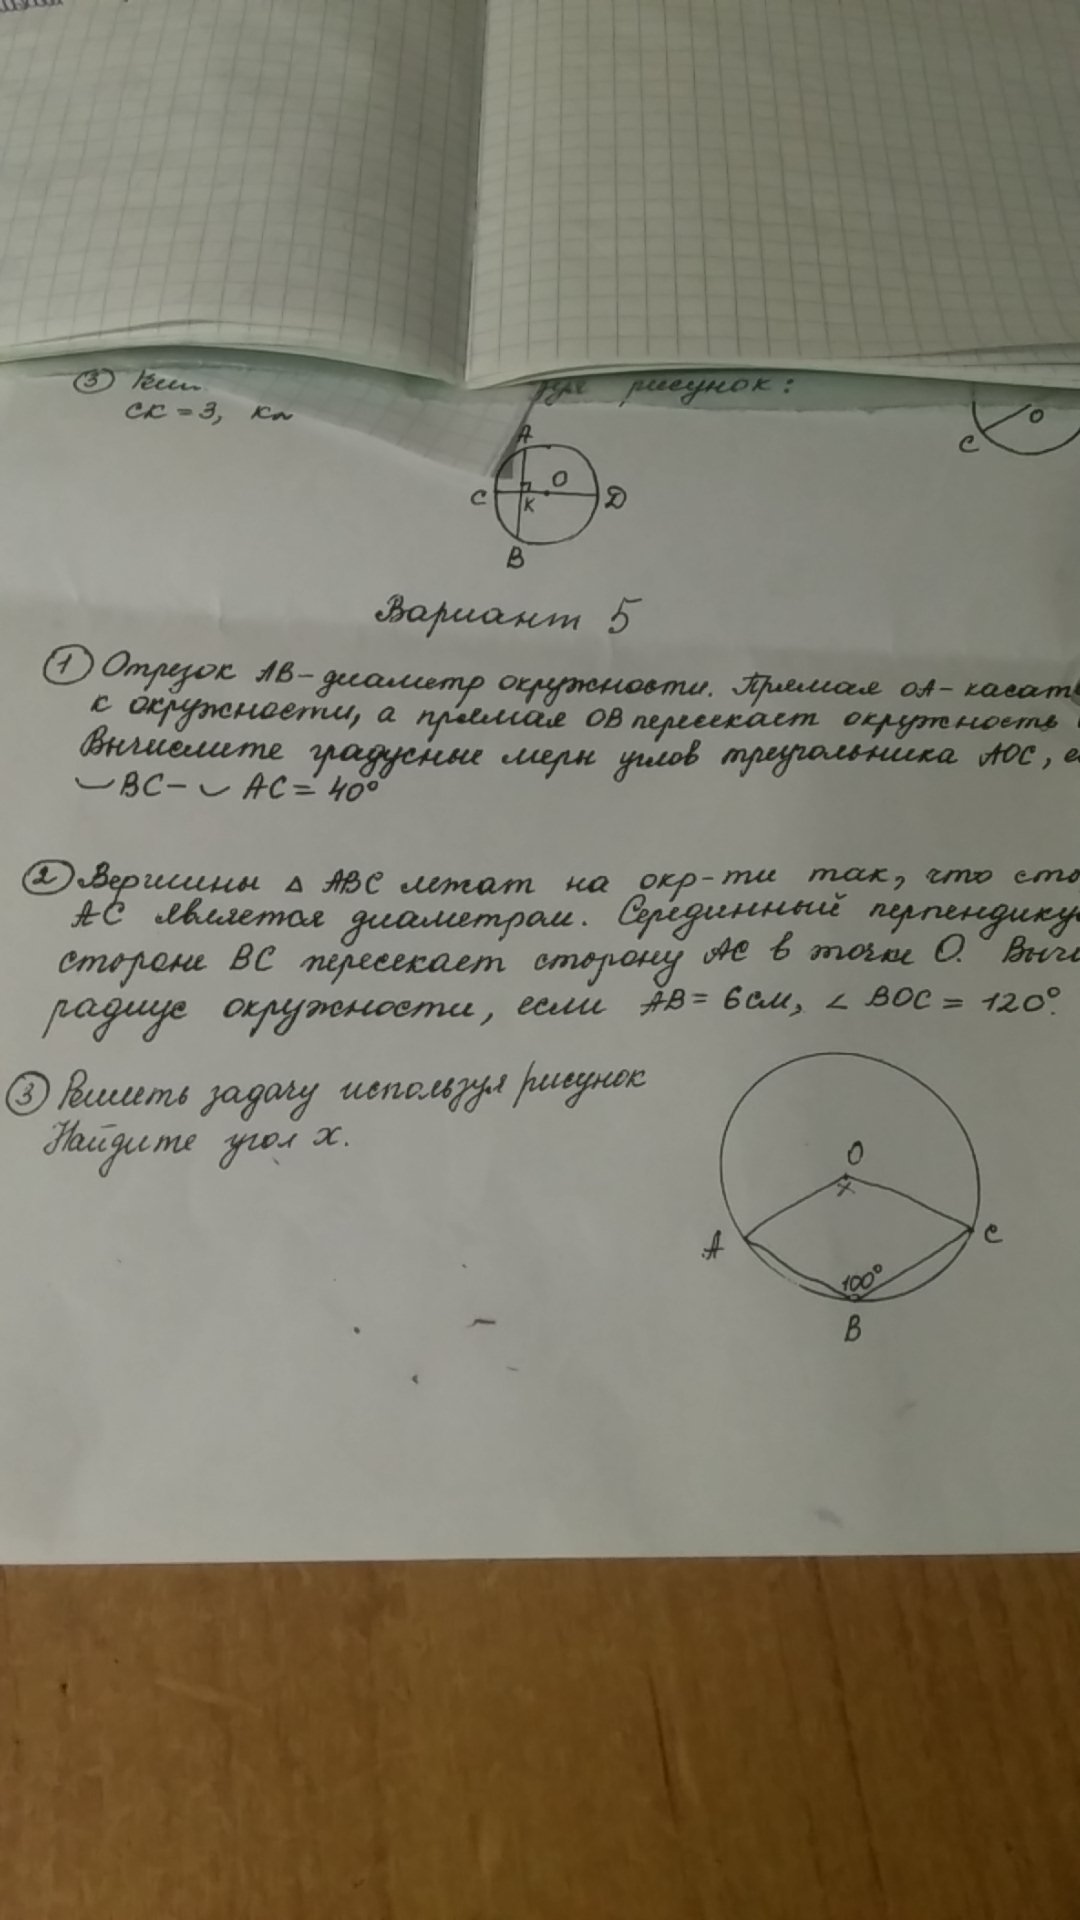 ③
СК = 3,
рисунок:
С О
А
С К О D
В
Вариант 5
① Отрезок АВ - диаметр окружности. Прямая ОА - касат
к окружности, а прямая ОВ пересекает окружность
Вычислите градусные меры углов треугольника АОС,
◡ ВС - ◡ АС = 40°
② Вершины Δ АВС лежат на окр-ти так, что сто
АС является диаметром. Серединный перпендику
стороне ВС пересекает сторону АС в точке О. Вычи
радиус окружности, если АВ = 6 см, ∠ ВОС = 120°.
③ Решить задачу используя рисунок
Найдите угол х.
О
х
А С
100°
В